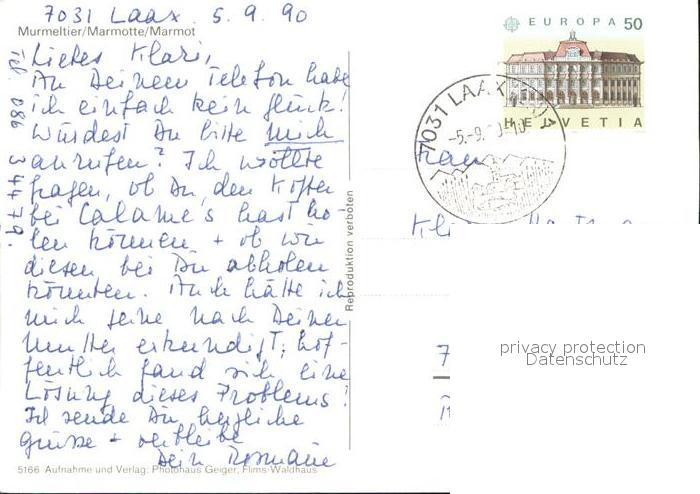 7031 Laax. 5.9.90
Murmeltier/Marmotte/Marmot
Liebes Klari,
An Deinem Telefon habe
ich einfach kein Glück!
Würdest Du bitte mich
anrufen? Ich wollte
fragen, ob Du den Koffer
bei Calame's hast ho-
len können + ob wir
diesen bei Dir abholen
könnten. Auch hätte ich
mich gerne nach Deiner
Mutter erkundigt; hof-
fentlich fand sich eine
Lösung dieses Problems!
Ich sende Dir herzliche
Grüsse + verbleibe
Dein
5166 Aufnahme und Verlag: Photohaus Geiger, Flims-Waldhaus
Tel. 086 3 44 79.
Reproduktion verboten
EUROPA 50
HELVETIA
7031 LAAX
-5.-9.90-10
Frau
7
privacy protection
Datenschutz